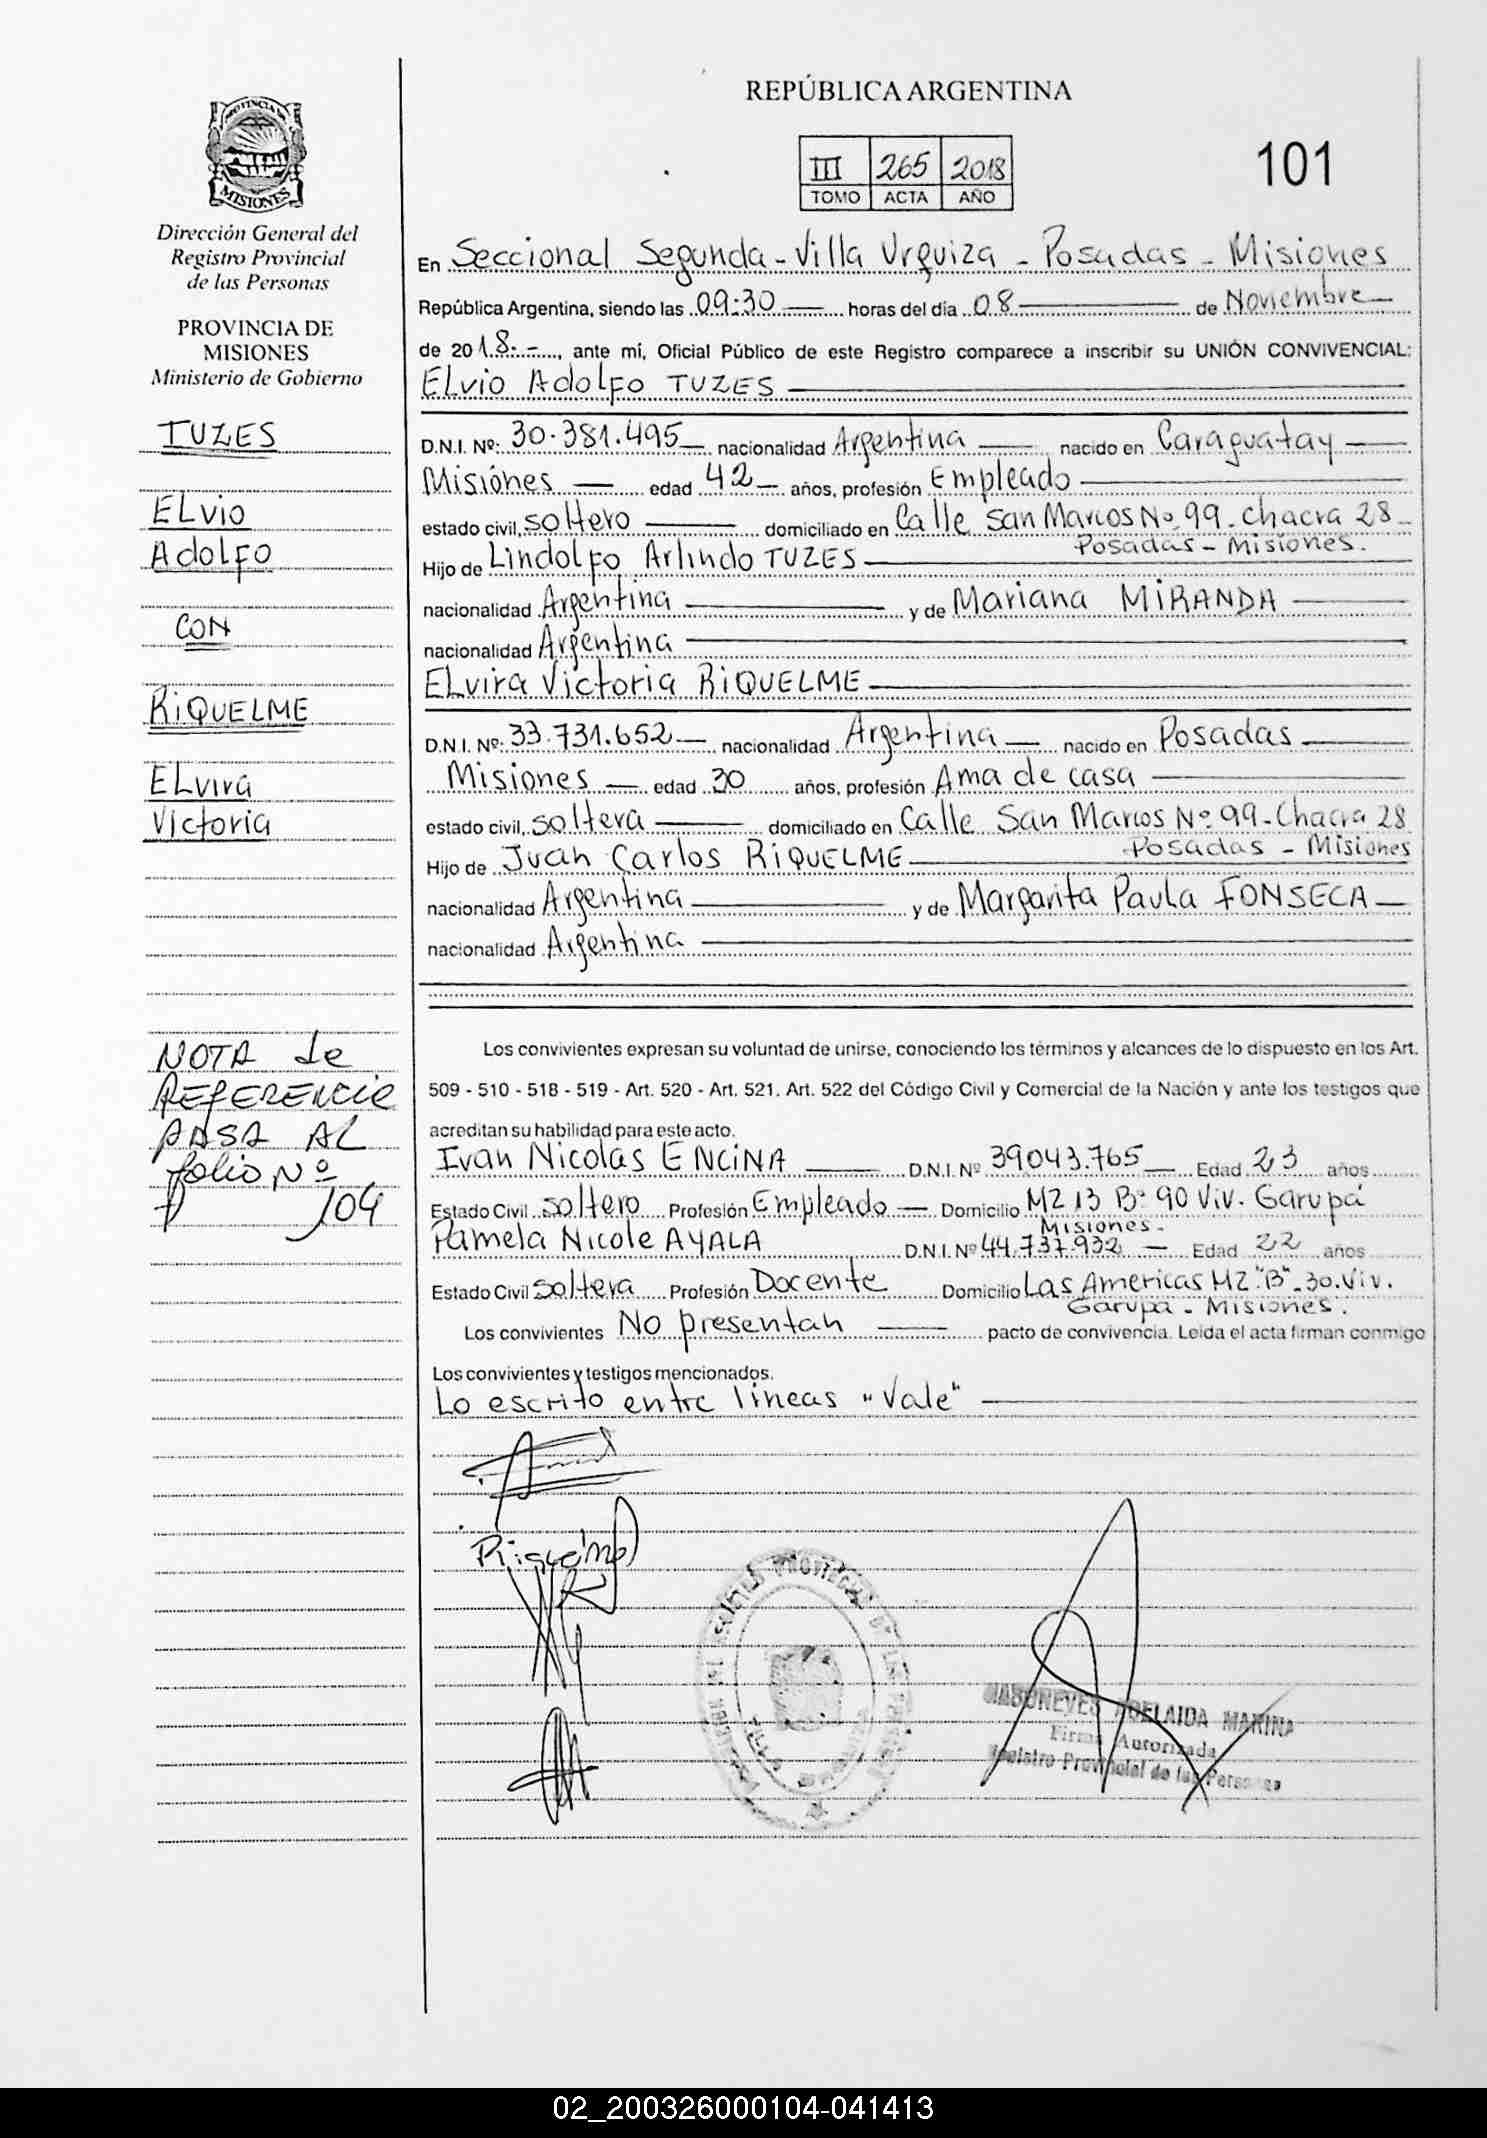 REPÚBLICA ARGENTINA
PROVINCIA DE
MISIONES
III 265 2018
TOMO ACTA AÑO
101
Dirección General del
Registro Provincial
de las Personas
PROVINCIA DE
MISIONES
Ministerio de Gobierno
TUZES
ELvio
AdoLfo
CON
RiQUELME
ELvira
Victoria
NOTA de
REFERENCIA
PASA AL
folio Nº
104
En Seccional Segunda - Villa Urquiza - Posadas - Misiones
República Argentina, siendo las 09:30 horas del día 08 de Noviembre
de 2018.-, ante mí, Oficial Público de este Registro comparece a inscribir su UNIÓN CONVIVENCIAL:
ELvio AdoLfo TUZES
D.N.I. Nº: 30.381.495 nacionalidad Argentina nacido en Caraguatay
Misiónes edad 42 años, profesión Empleado
estado civil, soltero domiciliado en Calle San Marcos No 99. Chacra 28
Posadas - Misiones.
Hijo de LindoLfo Arlindo TUZES
nacionalidad Argentina y de Mariana MiRANDA
nacionalidad Argentina
ELvira Victoria RiQUELME
D.N.I. Nº: 33.731.652 nacionalidad Argentina nacido en Posadas
Misiones edad 30 años, profesión Ama de casa
estado civil, soltera domiciliado en Calle San Marcos Nº 99 - Chacra 28
Posadas - Misiones
Hijo de Juan Carlos RiQUELME
nacionalidad Argentina y de Margarita Paula FONSECA
nacionalidad Argentina
Los convivientes expresan su voluntad de unirse, conociendo los términos y alcances de lo dispuesto en los Art.
509 - 510 - 518 - 519 - Art. 520 - Art. 521. Art. 522 del Código Civil y Comercial de la Nación y ante los testigos que
acreditan su habilidad para este acto.
Ivan Nicolas ENCiNA D.N.I. Nº 39043.765 Edad 23 años
Estado Civil soltero Profesión Empleado Domicilio MZ 13 Bº 90 Viv. Garupá
Misiones.
Pamela Nicole AYALA D.N.I. Nº 44.737.932 Edad 22 años
Estado Civil soltera Profesión Docente Domicilio Las Americas MZ "B" - 30. Viv.
Garupa - Misiones.
Los convivientes No presentan pacto de convivencia. Leída el acta firman conmigo
Los convivientes y testigos mencionados.
Lo escrito entre lineas "Vale"
ADELAIDA MARINA
Firma Autorizada
Registro Provincial de las Personas
02_200326000104-041413